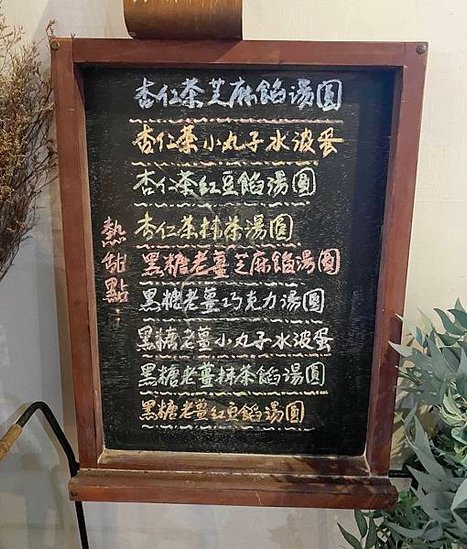 杏仁茶芝麻餡湯圓
杏仁茶小丸子水波蛋
杏仁茶紅豆餡湯圓
杏仁茶抹茶湯圓
熱甜點
黑糖老薑芝麻餡湯圓
黑糖老薑巧克力湯圓
黑糖老薑小丸子水波蛋
黑糖老薑抹茶餡湯圓
黑糖老薑紅豆餡湯圓